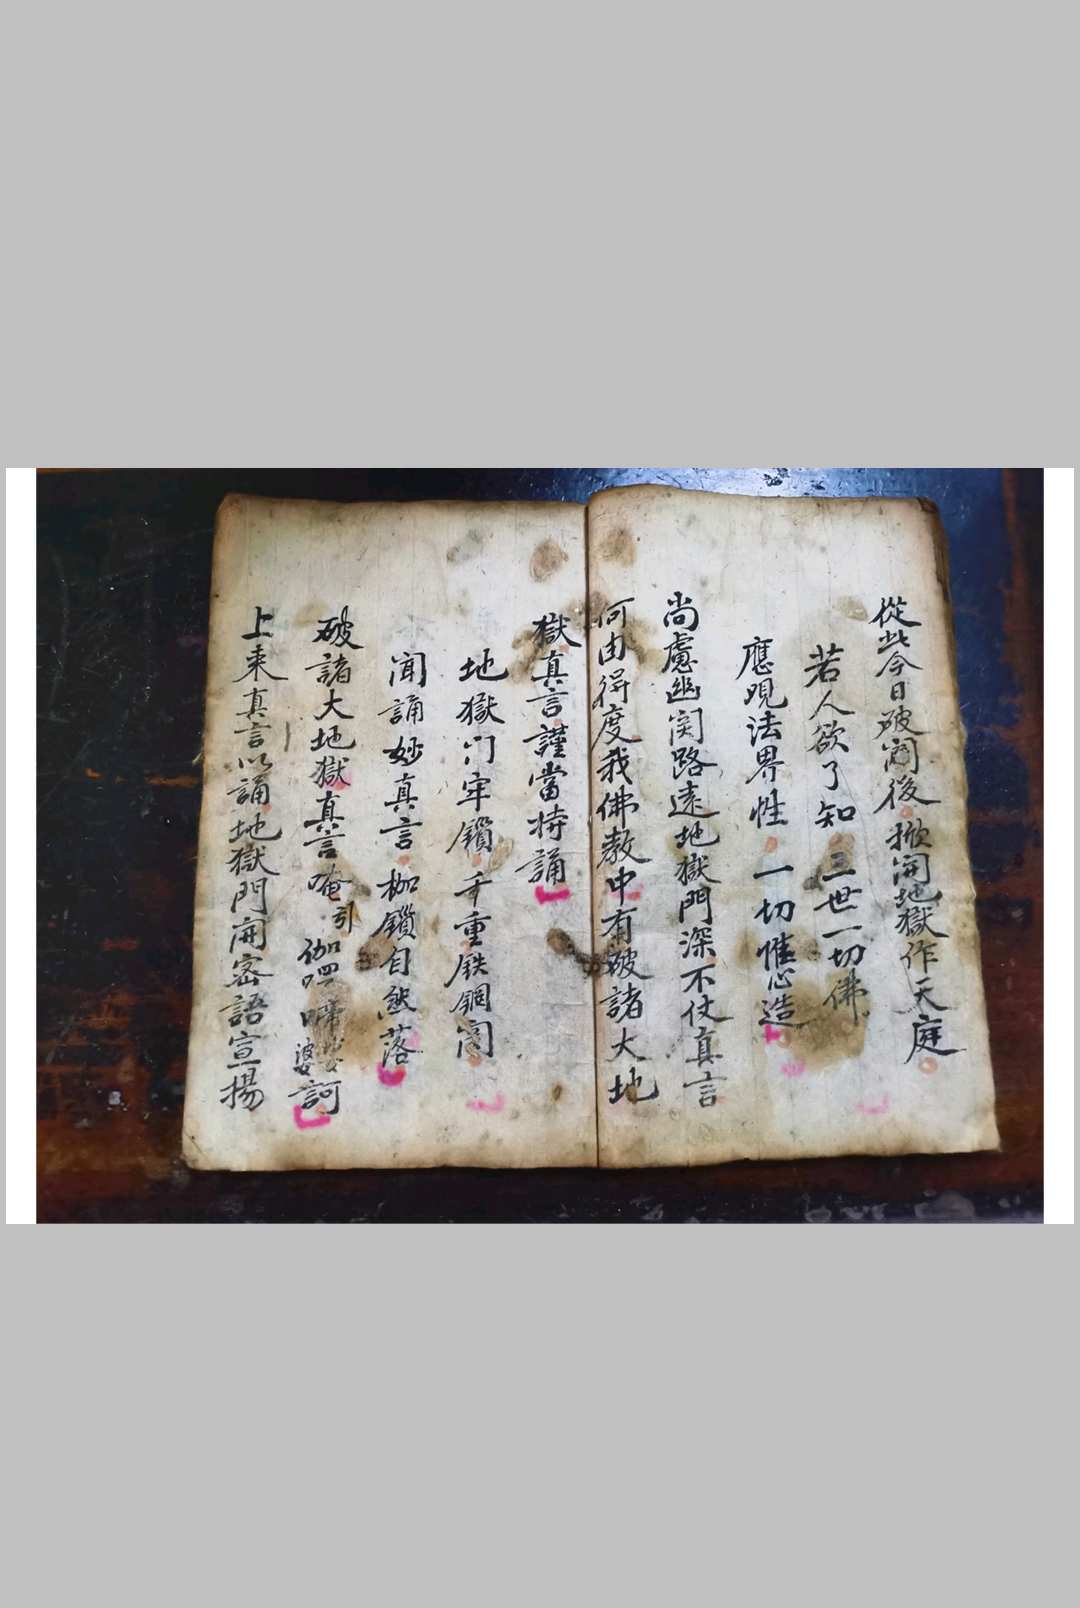 從此今日破関後掀開地獄作天庭
若人欲了知三世一切佛
應現法界性一切惟心造
尚慮幽関路遠地獄門深不仗真言
何由得度我佛教中有破諸大地
獄真言謹當持誦
地獄门牢鎖千重鉄網関
闻誦妙真言枷鎖自然落
破諸大地獄真言唵引伽囉啼娑婆訶
上来真言以誦地獄門開密語宣揚